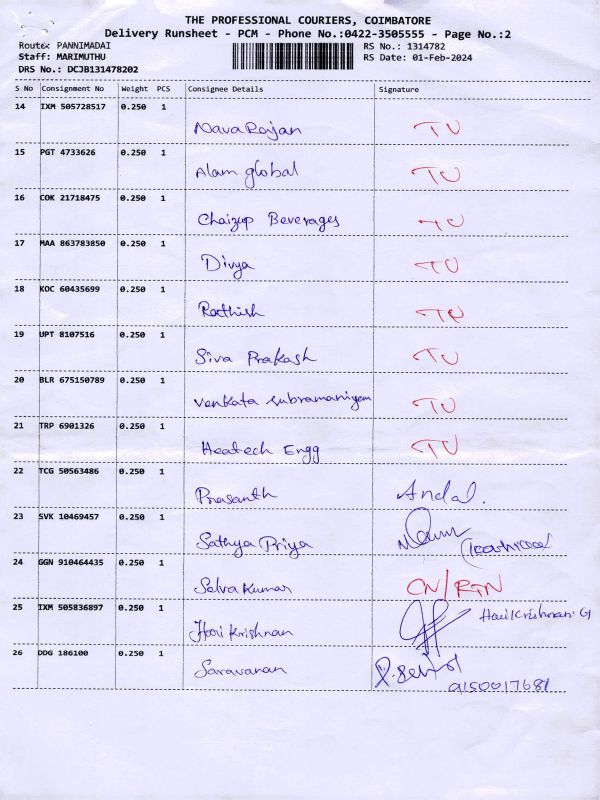 THE PROFESSIONAL COURIERS, COIMBATORE
Delivery Runsheet - PCM - Phone No.:0422-3505555 - Page No.:2
Route: PANNIMADAI RS No.: 1314782
Staff: MARIMUTHU RS Date: 01-Feb-2024
DRS No.: DCJB131478202
S No Consignment No Weight PCS Consignee Details Signature
14 IXM 505728517 0.250 1
Nava Rajan TU
15 PGT 4733626 0.250 1
Alam global TU
16 COK 21718475 0.250 1
Chaizup Beverages TU
17 MAA 863783850 0.250 1
Divya TU
18 KOC 60435699 0.250 1
Rathish TU
19 UPT 8107516 0.250 1
Siva Prakash TU
20 BLR 675150789 0.250 1
Venkata Subramaniyam TU
21 TRP 6901326 0.250 1
Heatech Engg TU
22 TCG 50563486 0.250 1
Prasanth Andal.
23 SVK 10469457 0.250 1
Sathya Priya
24 GGN 910464435 0.250 1
Selva Kumar CN/RTN
25 IXM 505836897 0.250 1
Hari Krishnan Hari Krishnan. G
26 DDG 186100 0.250 1
Saravanan
9150017681